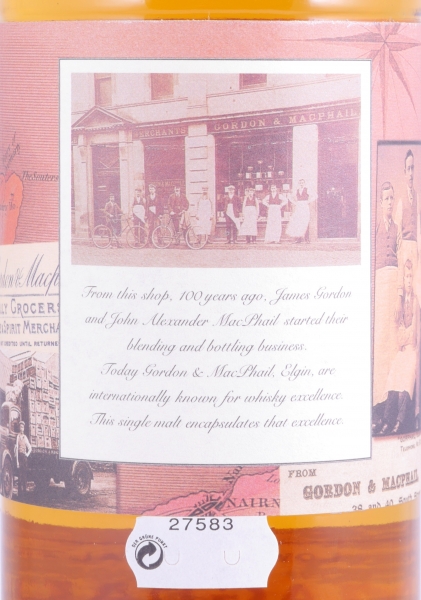 MERCHANTS GORDON & MACPHAIL
The Souters
From this shop, 100 years ago, James Gordon
and John Alexander MacPhail started their
blending and bottling business.
Today Gordon & MacPhail, Elgin, are
internationally known for whisky excellence.
This single malt encapsulates that excellence.
don & Macp
LY GROCERS
SPIRIT MERCHA
CREDITED UNTIL RETURNE
FROM
GORDON & MACPHAIL
NAIRN
27583
DER GRÜNE PUNKT